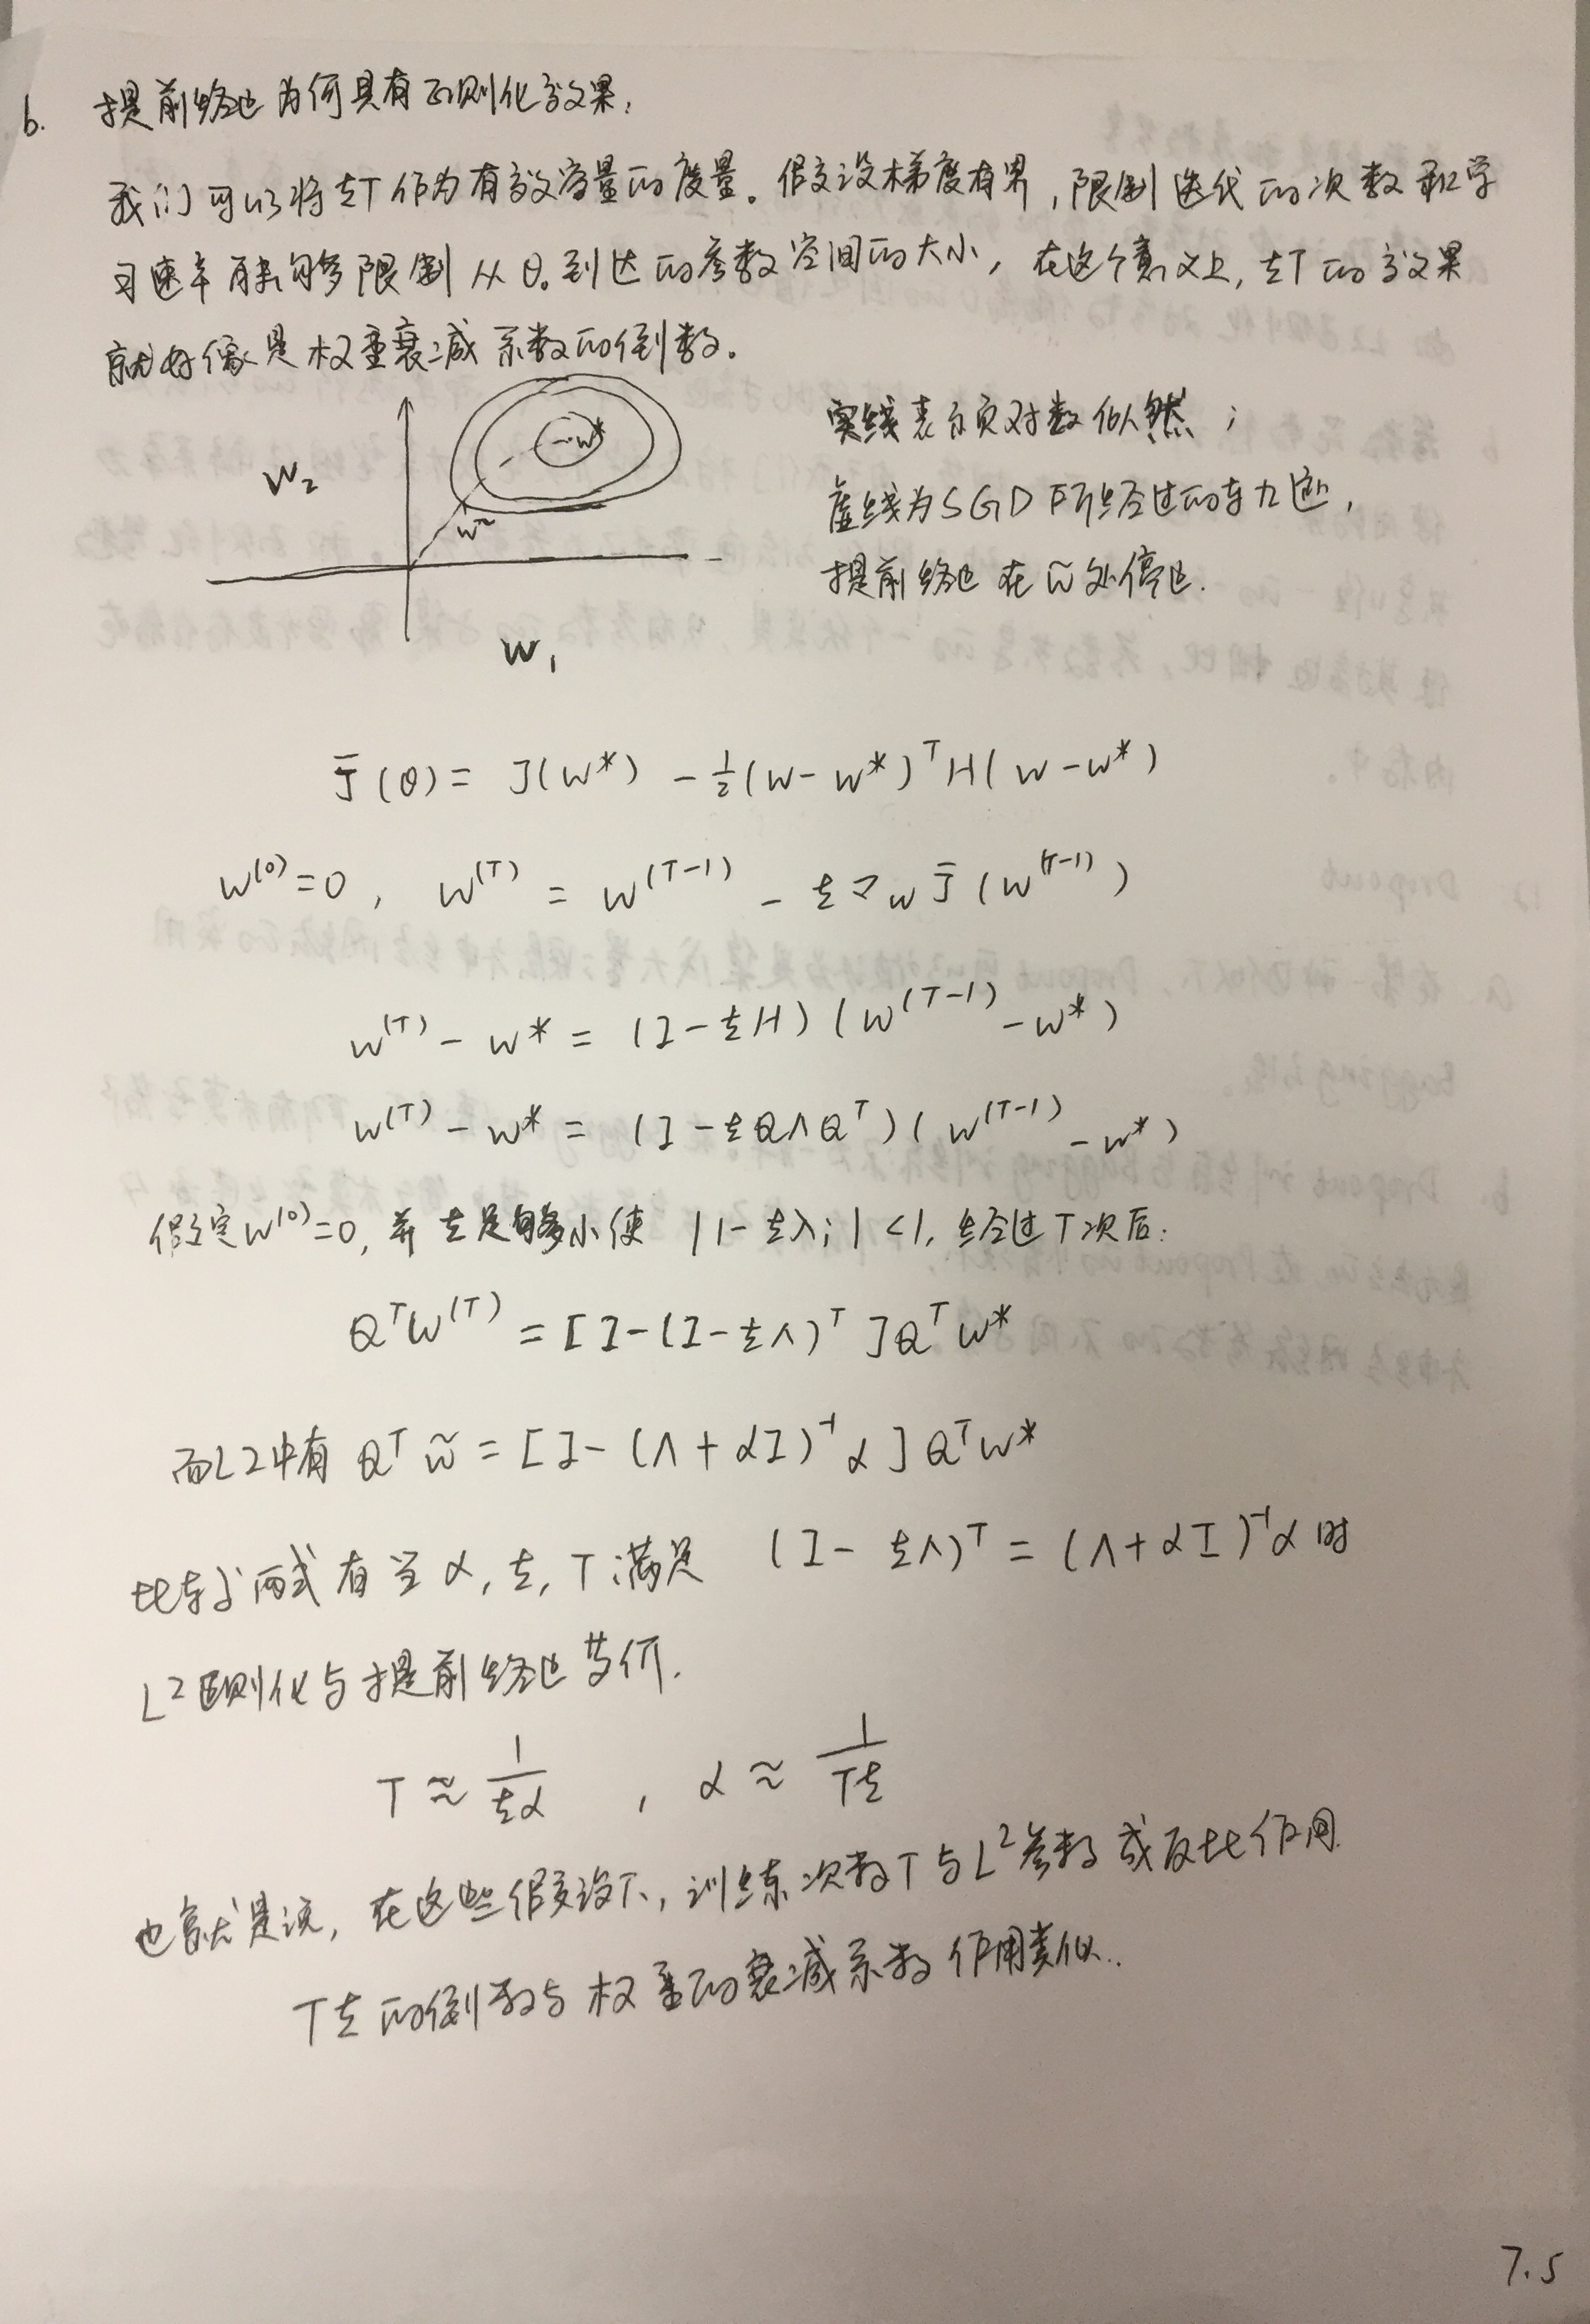 b. 提前终止为何具有正则化效果:
我们可以将ετ作为有效容量的度量。假设梯度有界,限制迭代的次数和学
习速率能够限制从θ₀到达的参数空间的大小,在这个意义上,ετ的效果
就好像是权重衰减系数的倒数。
w*
w₂
w̃
w₁
实线表示负对数似然;
虚线为SGD所经过的轨迹,
提前终止在w̃处停止.
J̄(θ) = J(w*) - ½(w-w*)ᵀH(w-w*)
w⁽⁰⁾=0, w⁽ᵀ⁾ = w⁽ᵀ⁻¹⁾ - ε∇_w J̄(w⁽ᵀ⁻¹⁾)
w⁽ᵀ⁾ - w* = (I-εH)(w⁽ᵀ⁻¹⁾-w*)
w⁽ᵀ⁾ - w* = (I-εQΛQᵀ)(w⁽ᵀ⁻¹⁾-w*)
假定w⁽⁰⁾=0, 并ε足够小使 |1-ελᵢ|<1, 经过T次后:
Qᵀw⁽ᵀ⁾ = [I-(I-εΛ)ᵀ]Qᵀw*
而L2中有 Qᵀw̃ = [I-(Λ+αI)⁻¹α]Qᵀw*
比较两式有当α, ε, T满足 (I-εΛ)ᵀ = (Λ+αI)⁻¹α时
L²正则化与提前终止等价.
T ≈ 1/(εα) , α ≈ 1/(Tε)
也就是说, 在这些假设下, 训练次数T与L²参数成反比作用.
Tε的倒数与权重的衰减系数作用类似..
7.5